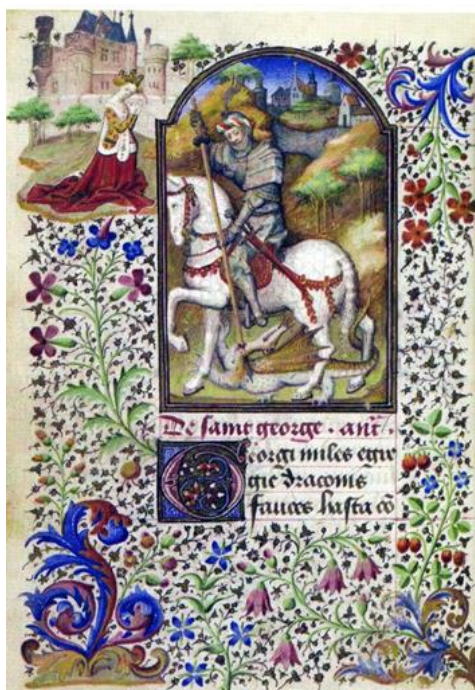 De saint george . ant̃ .
Georgi miles egre
gie draconis
fauces hasta cō